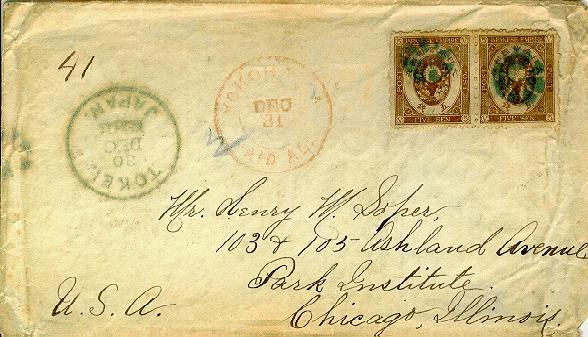 41
TOKEI JAPAN
DEC 30
YOKOHAMA
DEC 31
PAID ALL
JAPANESE EMPIRE
JAPANESE EMPIRE
FIVE SEN
FIVE SEN
Mr. Henry W. Soper,
103 & 105 Ashland Avenue
Park Institute.
Chicago, Illinois.
U.S.A.